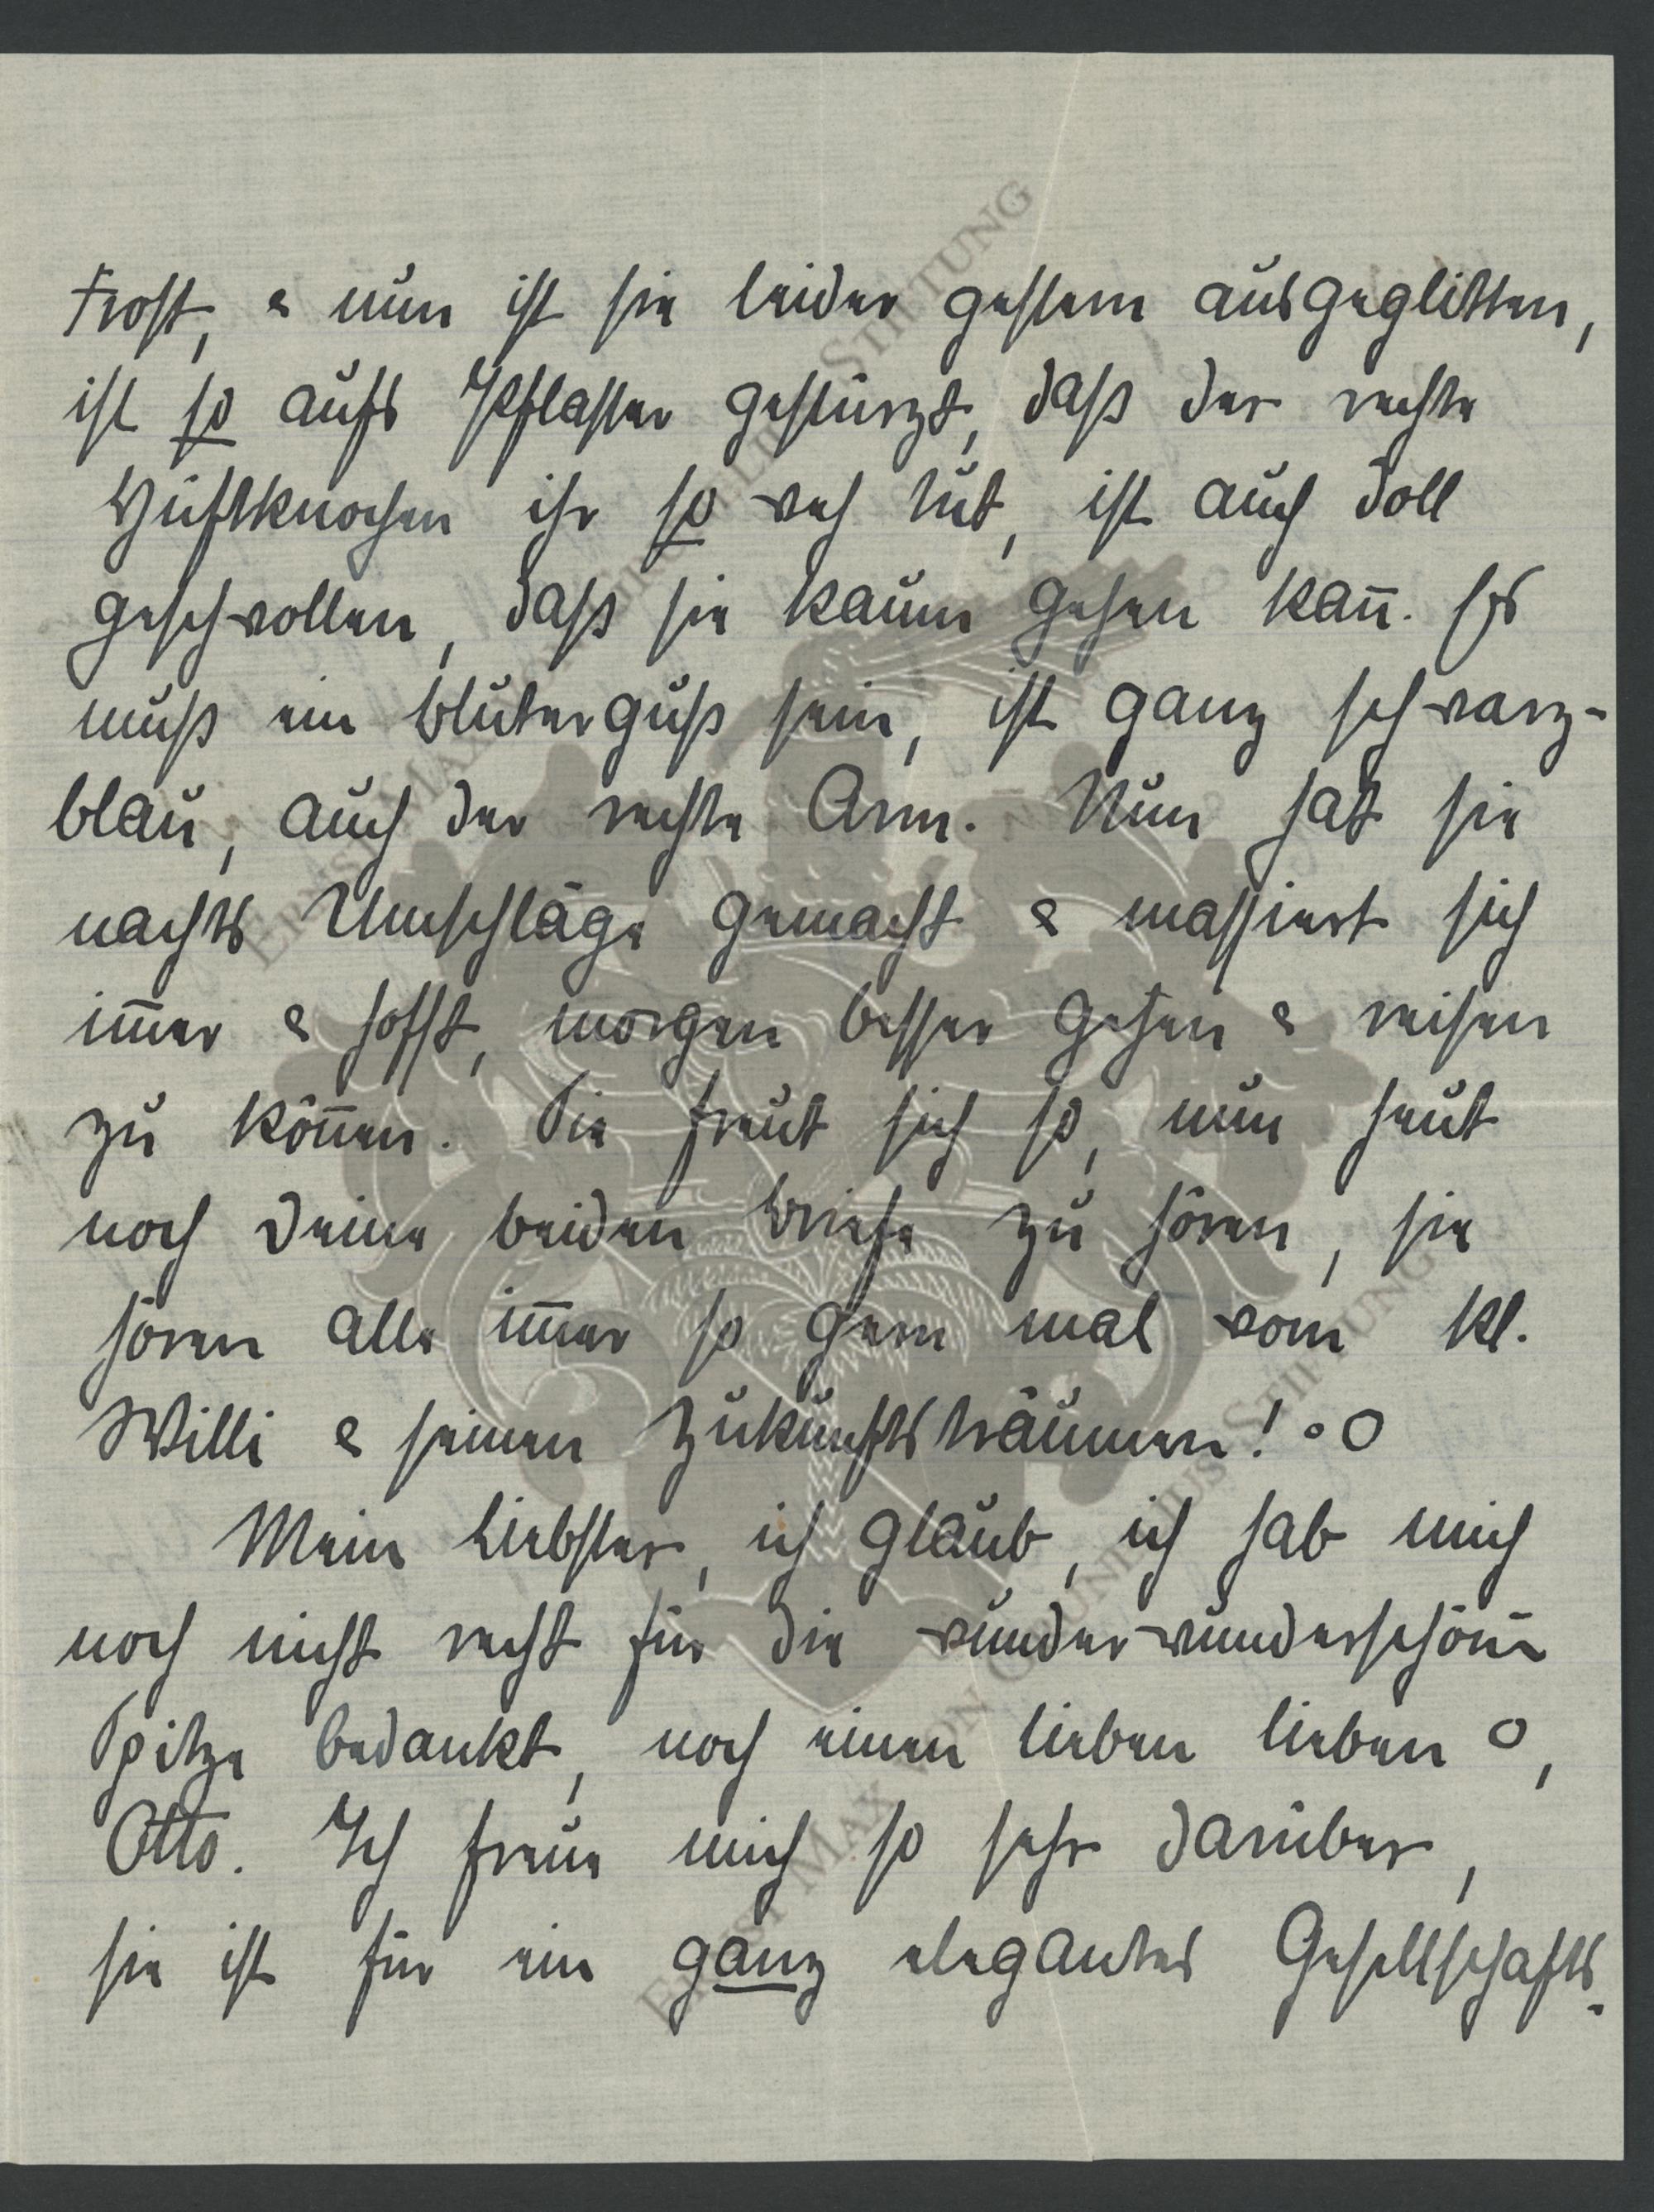 Frost, & nun ist sie leider gestern ausgeglitten,
ist so aufs Pflaster gestürzt, daß der rechte
Hüftknochen ihr so weh tut, ist auch doll
geschwollen, daß sie kaum gehen kan̄. Es
muß ein Bluterguß sein, ist ganz schwarz-
blau, auch der rechte Arm. Nun hat sie
nachts Umschläge gemacht & massiert sich
im̄er & hofft, morgen besser gehen & reisen
zu kön̄en. Sie freut sich so, nun heut
noch Deine beiden Briefe zu hören, sie
hören alle im̄er so gern mal vom kl.
Willi & seinen Zukunftsträumen! ° O
Mein Liebster, ich glaub, ich hab mich
noch nicht recht für die wunder-wunderschöne
Spitze bedankt, noch einen lieben lieben O,
Otto. Ich freue mich so sehr darüber,
sie ist für ein ganz elegantes Gesellschafts-
ERNST MAX VON GRUNELIUS STIFTUNG